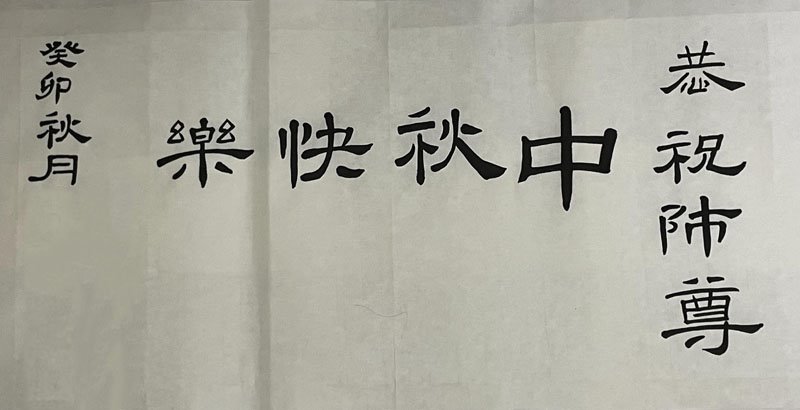 恭祝师尊
中秋快樂
癸卯秋月